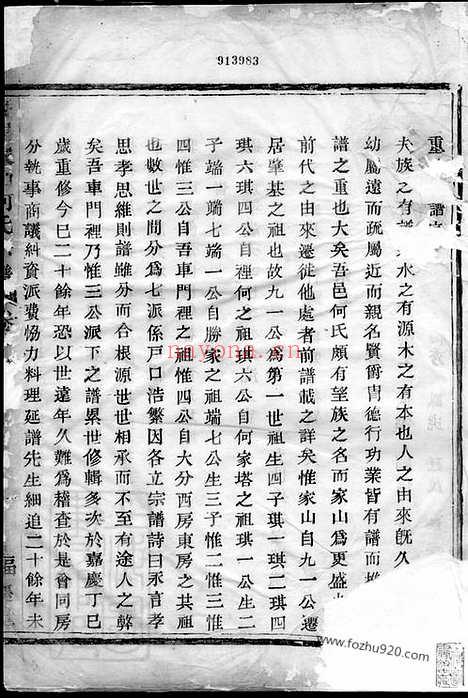 913983
重
譜
夫族之有譜水之有源木之有本也人之由來既久
幼屬遠而疏屬近而親名賢爵胄德行功業皆有譜而
譜之重也大矣吾邑何氏頗有望族之名而家山爲更盛
前代之由來遷徙他處者前譜載之詳矣惟家山自九一公遷
居肇基之祖也故九一公爲第一世祖生四子琪一琪二琪四
琪六琪四公自裡何之祖琪六公自何家塔之祖琪一公生二
子端一端七端一公自勝家之祖端七公生三子惟二惟三惟
四惟三公自吾車門裡之祖惟四公自大分西房東房之其祖
也數世之間分爲七派係戸口浩繁因各立宗譜詩曰永言孝
思孝思維則譜雖分而合根源世世相承而不至有途人之弊
矣吾車門裡乃惟三公派下之譜累世修輯多次於嘉慶丁巳
歲重修今已二十餘年恐以世遠年久難爲稽查於是會同房
分執事商議糾資派費恊力料理延譜先生細追二十餘年未
何氏
福
nayona.cn
www.fozhu920.com